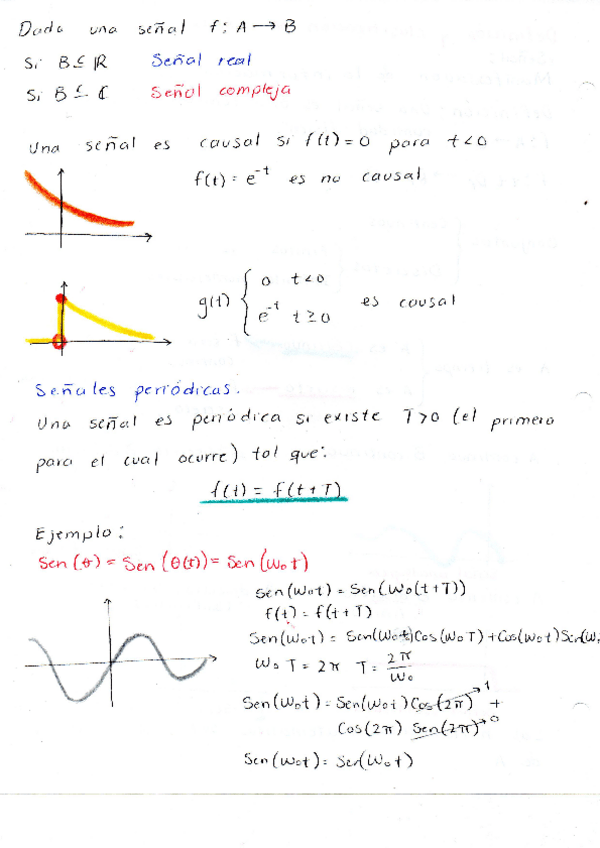 Dada una señal f: A → B
Si B ⊆ ℝ Señal real
Si B ⊆ ℂ Señal compleja
Una señal es causal si f(t) = 0 para t < 0
f(t) = e^-t es no causal
g(t) { 0 t < 0
e^-t t ≥ 0 es causal
Señales periódicas.
Una señal es periódica si existe T>0 (el primero
para el cual ocurre) tal que:
f(t) = f(t+T)
Ejemplo:
Sen(θ) = Sen(θ(t)) = Sen(ω₀t)
Sen(ω₀t) = Sen(ω₀(t+T))
f(t) = f(t+T)
Sen(ω₀t) = Sen(ω₀t)Cos(ω₀T) + Cos(ω₀t)Sen(ω₀
ω₀T = 2π T = 2π/ω₀
Sen(ω₀t) = Sen(ω₀t)Cos(2π)→1 +
Cos(2π) Sen(2π)→0
Sen(ω₀t) = Sen(ω₀t)